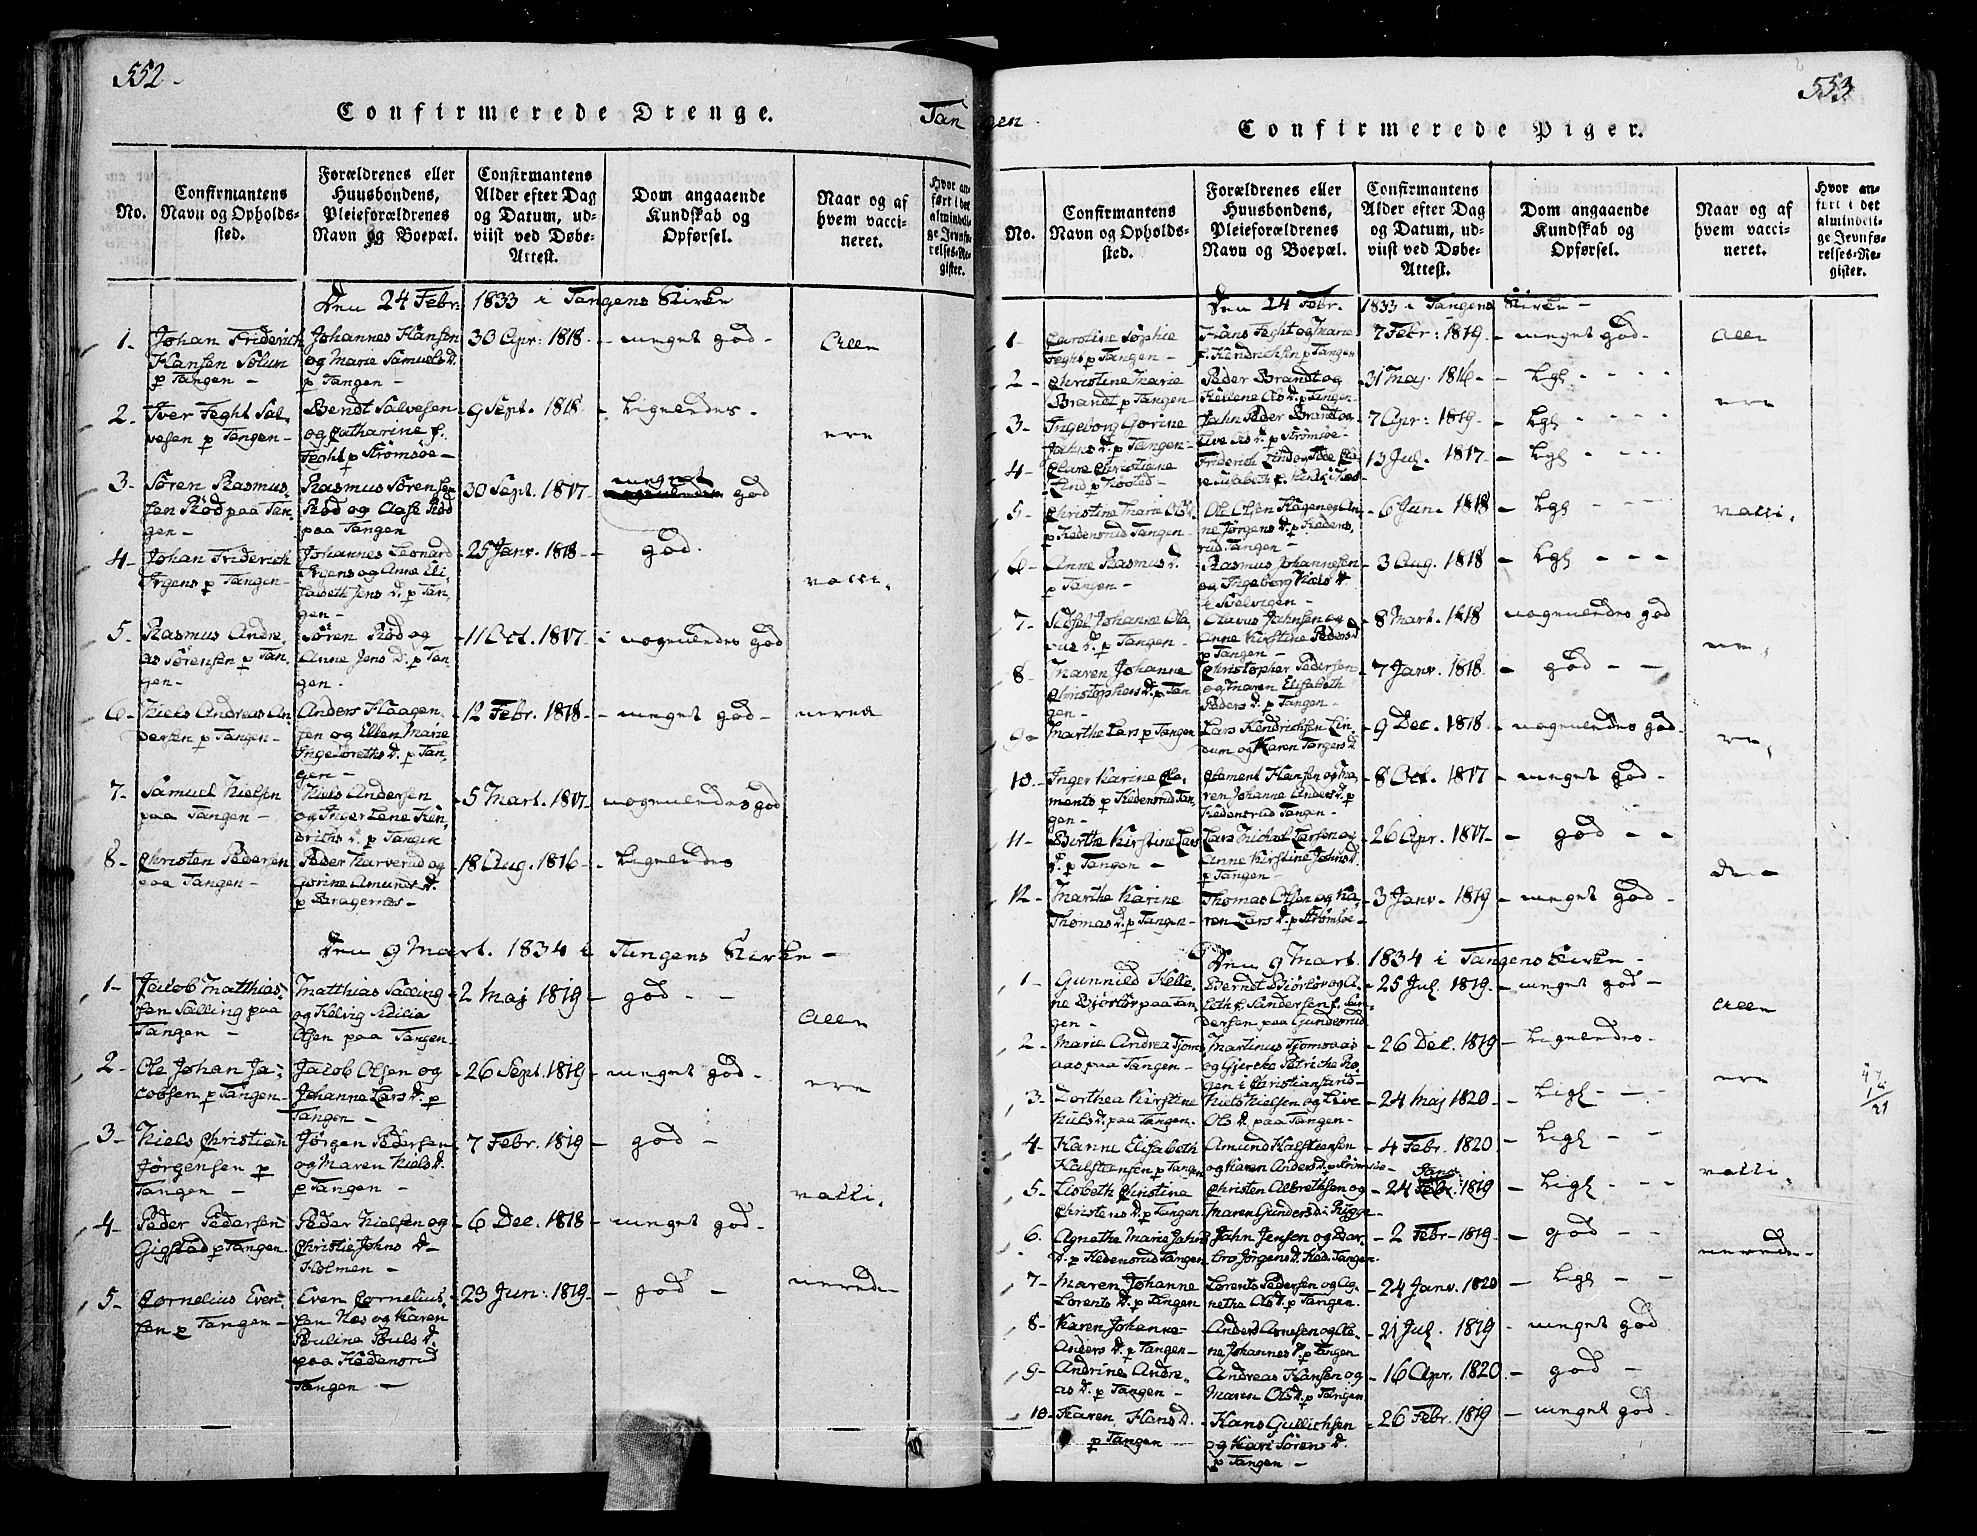 552
Confirmerede Drenge.
Tangen
No.
Confirmantens
Navn og Opholds-
sted.
Forældrenes eller
Huusbondens,
Pleieforældrenes
Navn og Boepæl.
Confirmantens
Alder efter Dag
og Datum, ud-
viist ved Døbe-
Attest.
Dom angaaende
Kundskab og
Opførsel.
Naar og af
hvem vacci-
neret.
Hvor an-
ført i det
almindeli-
ge Jevnfø-
relses-Re-
gister.
Den 24 Febr: 1833 i Tangens Kirke
1. Johan Friderich
Hansen Solun
p Tangen -
Johannes Hansen
og Marie Samuels d.
p Tangen -
30 Apr: 1818 - meget god -
2. Iver Feght Sal-
vesen p Tangen -
Bendt Salvesen
og Catharine f.
Feght p Strømsøe -
9 Sept. 1818 - Ligeledes -
3. Søren Rasmus-
sen Röd paa Tan-
gen -
Rasmus Sørensen
Röd og Aase Röd
paa Tangen
30 Sept. 1817 - meget god
4. Johan Friderich
Irgens p Tangen -
Johannes Leonard
Irgens og Anne Eli-
sabeth Jens d. p Tan-
gen -
25 Janv. 1818 - god.
5. Rasmus Andre-
as Sørensen p Tan-
gen -
Søren Röd og
Anne Jens d. p Tan-
gen.
11 Oct. 1817 - nogenledes god
6 - Niels Andreas An-
dersen p Tangen -
Anders Haagen-
sen og Ellen Marie
Ingebreths d. p Tan-
gen -
12 Febr. 1818 - meget god -
7. Samuel Nielsen
paa Tangen -
Niels Andersen
og Inger Lene Hen-
drichs d. p Tangen
5 Mart. 1817 - nogenledes god
8 - Christen Pedersen
paa Tangen -
Peder Narverud og
Gurine Amunds d.
p Bragernes -
18 Aug. 1816 - Ligeledes
Alle ere vacci- nerede
Den 9 Mart. 1834 i Tangens Kirke -
1 - Jacob Matthias-
sen Salling paa
Tangen -
Matthias Salling
og Helvig Sidilia
Olsen paa Tangen -
2 Maj 1819 - god - -
2. Ole Johan Ja-
cobsen p Tangen -
Jacob Olsen og
Johanne Lars d. p
Tangen -
26 Sept. 1819 - meget god -
3 - Niels Christian
Jørgensen p
Tangen -
Jørgen Pedersen
og Maren Niels d.
p Tangen -
7 Febr. 1819 - god -
4 - Peder Pedersen
Gigstad p Tangen
Peder Nielsen og
Christie Johns d -
Holmen -
6 Dec. 1818 - meget god -
5 - Cornelius Even-
sen p Tangen -
Even Cornelius-
sen Næs og Karen
Pouline Pouls d.
paa Hedensrud
Tangen -
23 Jun: 1819 - god -
Alle ere vacci- nerede
553
Confirmerede Piger.
No.
Confirmantens
Navn og Opholds-
sted.
Forældrenes eller
Huusbondens,
Pleieforældrenes
Navn og Boepæl.
Confirmantens
Alder efter Dag
og Datum, ud-
viist ved Døbe-
Attest.
Dom angaaende
Kundskab og
Opførsel.
Naar og af
hvem vacci-
neret.
Hvor an-
ført i det
almindeli-
ge Jevnfø-
relses-Re-
gister.
Den 24 Febr. 1833 i Tangens Kirke -
1 - Caroline Sophie
Feght p Tangen -
Hans Feght og Marie
f. Hendrichsen p Tangen
7 Febr: 1819 - meget god -
2 - Christine Marie
Brandt p Tangen -
Peder Brandt og
Helene Ols d. p Tangen -
31 Maj. 1816 - Lgl - - -
3 - Ingeborg Gorine
Jahns d. p Tangen -
Jahn Peder Brandt og
Live Ols d. p Strømsøe -
7 Apr: 1819 - Lgl - - - -
4 - Clare Christiane
Friderich
13 Jul. 1817 - Lgl - - -
5 - Christine Marie Ols d.
p Hedensrud Tangen
Ole Olsen Hagen og An-
ne Jørgens d. p Hedens-
rud Tangen -
6 Jun. 1818 - Lgl - - -
6 - Anne Rasmus d.
p Tangen -
Rasmus Johannesen
og Ingeborg Niels d.
i Solvigen -
3 Aug. 1818 - Lgl - - -
7 - Sidsel Johanne Ola-
vus d. p Tangen -
Olavus Jahnsen og
Anne Kirstine Peders d
p Tangen -
8 Mart. 1818 - nogenledes god
8 - Maren Johanne
Christophers d. p Tan-
gen -
Christopher Pedersen
og Maren Elisabeth
Peders d. p Tangen -
7 Janv. 1818 - god - -
9 - Marthe Lars p Tangen
Lars Hendrichsen Lin-
dum og Karen Torgers d.
9 Dec. 1818 - nogenledes god -
10 - Inger Karine Cle-
ments p Hedensrud Tan-
gen -
Clement Hansen og Ma-
ren Johanne Anders d. p
Hedensrud Tangen -
8 Oct. 1817 - meget god -
11 - Birthe Kirstine Lars
d. p Tangen -
Lars Michel Larsen og
Anne Kirstine Johns d.
p Tangen -
26 Apr. 1817 - god - -
12 - Marthe Karine
Thomas d. p Tangen -
Thomas Olsen og Ka-
ren Lars d. p Strømsøe -
3 Janv - 1819 - meget god -
Alle ere vacci- ne- re- de -
Den 9 Mart. 1834 i Tangens Kirke -
1 - Gunnild Helle-
ne Bjørlør paa Tan-
gen -
Berndt Bjørlør og
Sandersen f. San-
dersen paa Gundesrud
25 Jul. 1819 - meget god -
2 - Marie Andrea Tjoms-
aas paa Tangen -
Martinus Tjomsaas
og Gjertke Petriche Ro-
gen i Christiansand -
26 Dec. 1819 - Ligeledes -
3 - Dorthea Kirstine
Niels d. paa Tangen -
Niels Nielsen og Live
Ols d. paa Tangen -
24 Maj 1820 - Ligl - -
4 - Hanne Elisabeth
Halstensen p Tangen
Amund Halstensen
og Karen Anders d. p Strømsøe -
4 Febr. 1820 - Ligl - -
5 - Lisbeth Christine
Christens d. p Tangen -
Christen Albrethsen og
Maren Gunders d.
24 Febr. Janv. 1819 - Ligl - - -
6. Agnethe Marie Jahns
d. p Hedensrud Tangen
Jahn Jensen og Bar-
bro Jørgens d. Hed. Tangen -
2 Febr - 1819 - god - -
7 - Maren Johanne
Lorents d. p Tangen
Lorents Pedersen og Ag-
nethe Ols d. p Tangen.
24 Janv. 1820 - Ligl - -
8 - Karen Johanne
Anders d. p Tangen -
Anders Arnesen og Le-
ne Johannes d. p Tangen
21 Jul. 1819 - meget god
9 - Andrine Andre-
as d. p Tangen -
Andreas Hansen og
Maren Ols d. p Tangen
16 Apr. 1820 - god -
10 - Karen Hans d.
p Tangen -
Hans Gullichsen
og Kari Sørens d.
p Tangen -
26 Febr. 1819 - meget god -
Alle ere vacci- nerede -